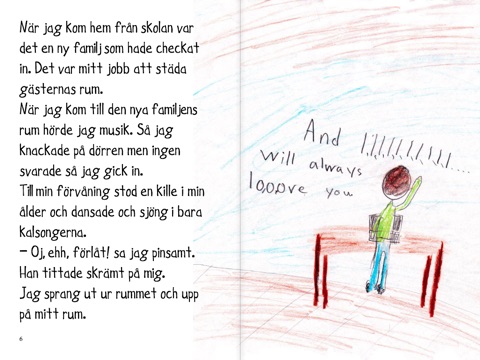 När jag kom hem från skolan var
det en ny familj som hade checkat
in. Det var mitt jobb att städa
gästernas rum.
När jag kom till den nya familjens
rum hörde jag musik. Så jag
knackade på dörren men ingen
svarade så jag gick in.
Till min förvåning stod en kille i min
ålder och dansade och sjöng i bara
kalsongerna.
– Oj, ehh, förlåt! sa jag pinsamt.
Han tittade skrämt på mig.
Jag sprang ut ur rummet och upp
på mitt rum.
6
And IIIIIIIIII....
will always
looove you